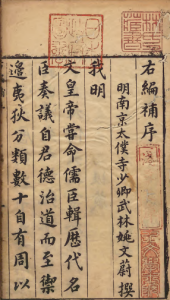 右編補序
明南京太僕寺少卿武林姚文蔚撰
我明
文皇帝嘗命儒臣輯歷代名
臣奏議自君德治道而至禦
邉夷狄分類數十自有周以